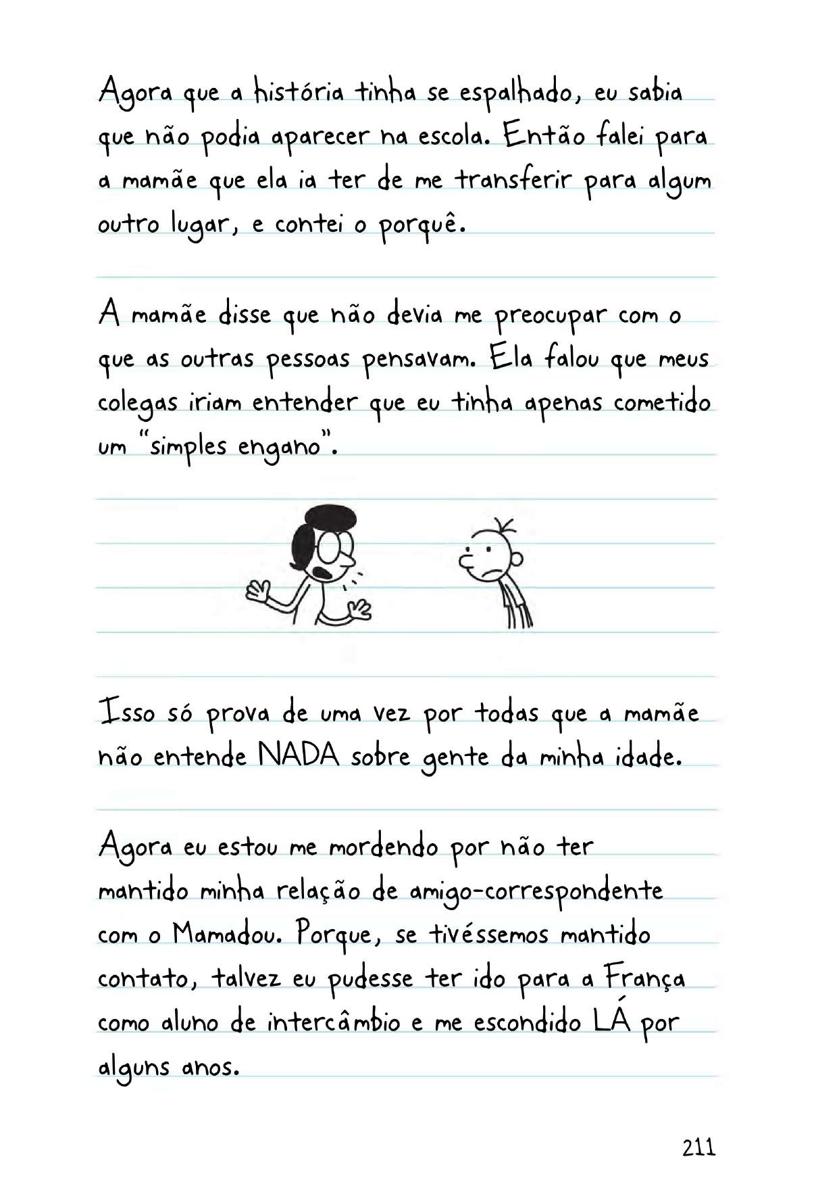 Agora que a história tinha se espalhado, eu sabia
que não podia aparecer na escola. Então falei para
a mamãe que ela ia ter de me transferir para algum
outro lugar, e contei o porquê.
A mamãe disse que não devia me preocupar com o
que as outras pessoas pensavam. Ela falou que meus
colegas iriam entender que eu tinha apenas cometido
um “simples engano”.
Isso só prova de uma vez por todas que a mamãe
não entende NADA sobre gente da minha idade.
Agora eu estou me mordendo por não ter
mantido minha relação de amigo-correspondente
com o Mamadou. Porque, se tivéssemos mantido
contato, talvez eu pudesse ter ido para a França
como aluno de intercâmbio e me escondido LÁ por
alguns anos.
211